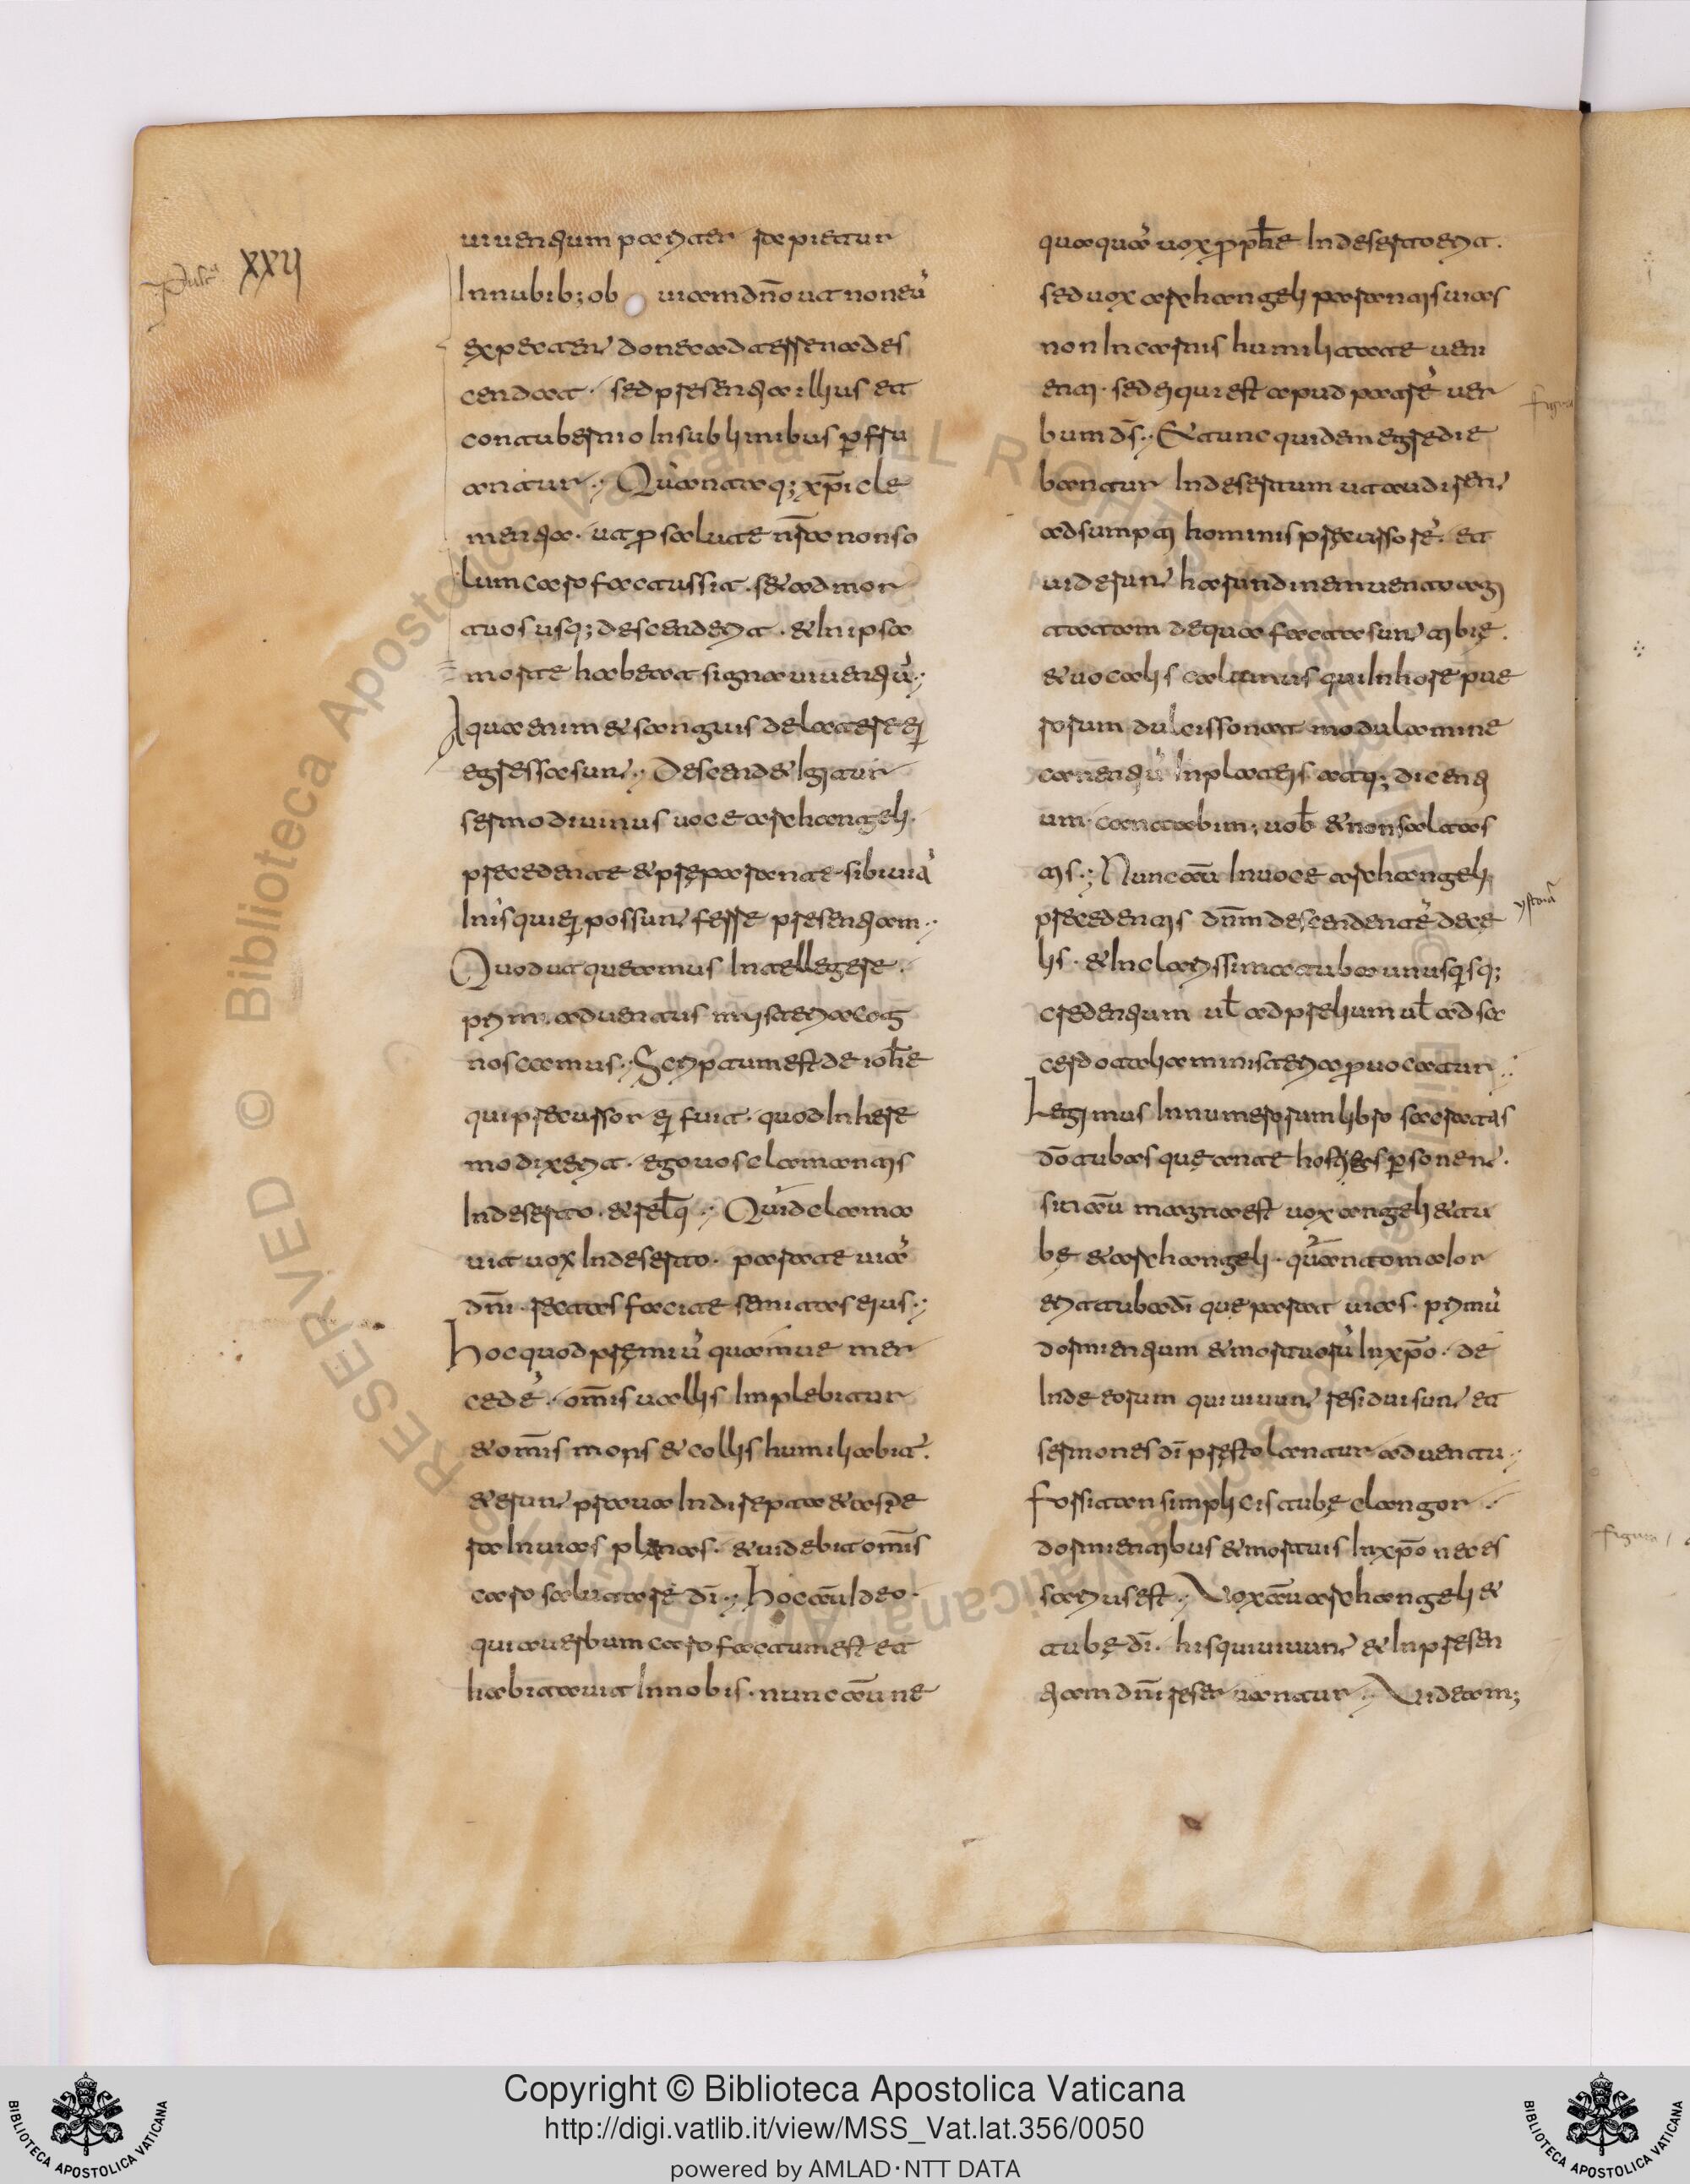 xxv
uiuentium pariter rapietur
In nubib; ob uiam dn̄o ut non eū
expectent donec ad terrena des
cendat · sed presentia illius et
contubernio In sublimibus ꝑfru
antur · Quanta q; xp̄i cle
mentia · ut ꝓ salute nr̄a non so
lum caro factus sit · sed ad mor
tuos usq; descenderit · & In ipsa
morte haberet signa uiuentiū
Aqua enim & sanguis de latere ei
egressa sunt · Descendet Igitur
sermo diuinus uoce archangeli
precedente & pręparante sibi uiā
In is qui ei possunt ferre presentiam
Quod ut queamus Intellegere
primi aduentus mysteria cog
noscamus · Scriptum est de ioħe
qui precursor ei fuit · quod In here
mo dixerit · ego uox clamantis
In deserto · & rel̄q · Quid clama
uit uox In deserto · parate uiā
dn̄i · rectas facite semitas eius
Hoc quod pręmiū quam ue mer
cedē · om̄is uallis Implebitur
& om̄is mons & collis humiliabit̄
& erunt praua In directa & aspe
ra In uias planas · & uidebit om̄is
caro salutare dī · Hoc aūt Ideo
quia uerbum caro factum est et
habitauit In nobis · nunc aūt ne
quaquā uox ꝓpħe In deserto erit
sed uox archangeli parantis uias
non In carnis humilitate ueni
enti · sed ei qui est apud patrē uer
bum dꝰ · Et tunc quidem egredie
bantur In desertum ut audirent
adsumpti hominis precursorē · et
uiderunt harundinem uento agi
tatam de qua facta sunt tibię
& uocalis calamus qui In hore pue
rorum dulcis sonat modulamine
cantantiū In plateis atq; dicenti
um · cantabim; uob̄ & non saltas
tis · Nunc aūt In uoce archangeli
precedentis dn̄m descendentē de cę
lis · & In clarissima tuba unusq̇sq;
credentium ul̄ ad prelium ul̄ ad sa
cerdotalia ministeria ꝓuocatur
Legimus In numerorum libro sacratas
dō tubas quę ante hostias ꝑsonent
si tā magna est uox angeli & tu
bę & archangeli · quanto maior
erit tuba dī quę parat uias · primū
dormientium & mortuorū In xp̄o · de
Inde eorum qui uiuunt residui sunt et
sermones dī pręstolantur aduentu
Forsitan simplicis tubę clangor
dormientibus & mortuis In xp̄o neces
sarius est · Vox aūt archangeli &
tubę dī · his qui uiuunt & In presen
tiam dn̄i reseruantur · Videam;
ystoria
figura
Copyright © Biblioteca Apostolica Vaticana
http://digi.vatlib.it/view/MSS_Vat.lat.356/0050
powered by AMLAD·NTT DATA
BIBLIOTECA APOSTOLICA VATICANA
BIBLIOTECA APOSTOLICA VATICANA